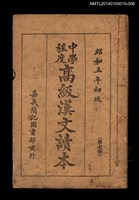 NMTL20140100015-006
昭和五年初版
中學程度
高級漢文讀本
(第七冊)
嘉義蘭記圖書部發行